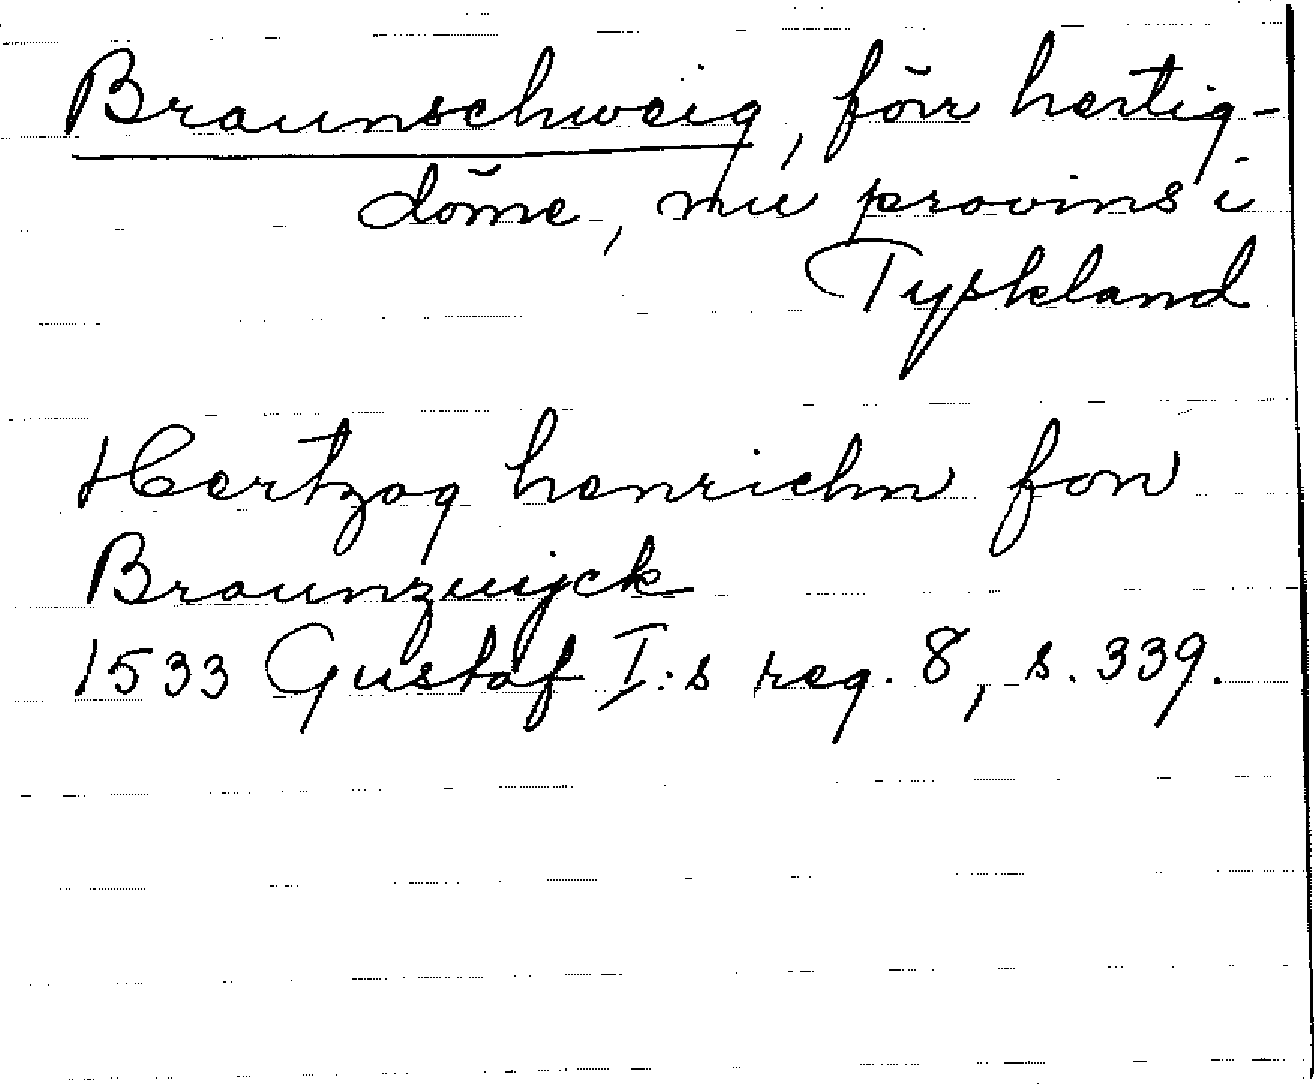 Braunschweig, förr hertig-
döme, nu provins i
Tyskland
Hertzog henrichn fon
Braunzwijck
1533 Gustaf I:s reg. 8, s. 339.